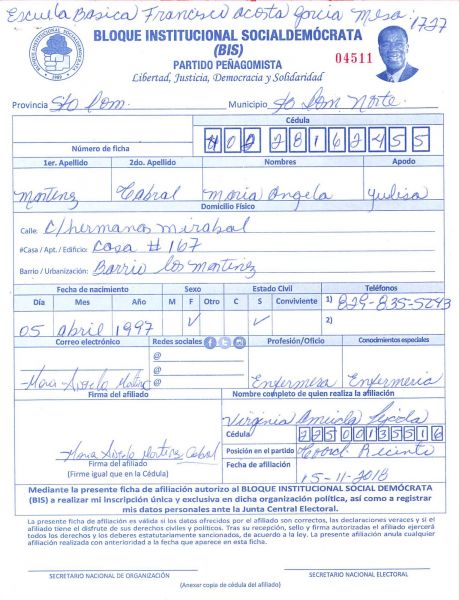 Escuela Basica Francisco Acosta Garcia Mesa 1727
BLOQUE INSTITUCIONAL SOCIALDEMÓCRATA
(BIS)
04511
PARTIDO PEÑAGOMISTA
Libertad, Justicia, Democracia y Solidaridad
Provincia Sto Dom. Municipio Sto Dom Norte.
Cédula
Número de ficha
1er. Apellido 2do. Apellido Nombres Apodo
Martinez Cabral Maria Angela Yudisa
Domicilio Físico
Calle: C/hermanas mirabal
#Casa / Apt. / Edificio: Casa # 167
Barrio / Urbanización: Barrio los Martinez
Fecha de nacimiento Sexo Estado Civil Teléfonos
Día Mes Año M F Otro C S Conviviente 1) 829-835-5243
05 abril 1997 ✓ ✓ 2)
Correo electrónico Redes sociales Profesión/Oficio Conocimientos especiales
@
@
@
Enfermera Enfermeria
Firma del afiliado Nombre completo de quien realiza la afiliación
Virginia
Cédula 22500135516
Maria Angela Martinez Cabral Posición en el partido Recinto
Firma del afiliado
(Firme igual que en la Cédula)
Fecha de afiliación 15-11-2018
Mediante la presente ficha de afiliación autorizo al BLOQUE INSTITUCIONAL SOCIAL DEMÓCRATA
(BIS) a realizar mi inscripción única y exclusiva en dicha organización política, así como a registrar
mis datos personales ante la Junta Central Electoral.
La presente ficha de afiliación es válida si los datos ofrecidos por el afiliado son correctos, las declaraciones veraces y si el
afiliado tiene el disfrute de sus derechos civiles y políticos. Tras su recepción, sello y firma autorizadas el afiliado ejercerá
todos los derechos y los deberes estatutariamente sancionados, de acuerdo a la ley. La presente afiliación anula cualquier
afiliación realizada con anterioridad a la fecha que aparece en esta ficha.
SECRETARIO NACIONAL DE ORGANIZACIÓN SECRETARIO NACIONAL ELECTORAL
(Anexar copia de cédula del afiliado)